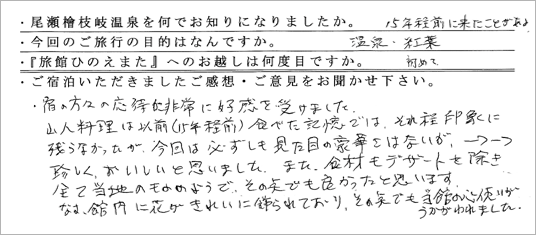 ・尾瀬檜枝岐温泉を何でお知りになりましたか。 15年程前に来たことがある
・今回のご旅行の目的はなんですか。 温泉・紅葉
・『旅館ひのえまた』へのお越しは何度目ですか。 初めて
・ご宿泊いただきましたご感想・ご意見をお聞かせ下さい。
・宿の方々の応待に非常に好感を受けました。
山人料理は以前(15年程前)食べた記憶では、それ程印象に
残らなかったが、今回は必ずしも見た目の豪華さはないが、一つ一つ
珍しく、おいしいと思いました。また、食材もデザートを除き
全て当地のもののようで、その点でも良かったと思います。
なお、館内に花がきれいに飾られており、その点でも当館の心使いが
うかがわれました。